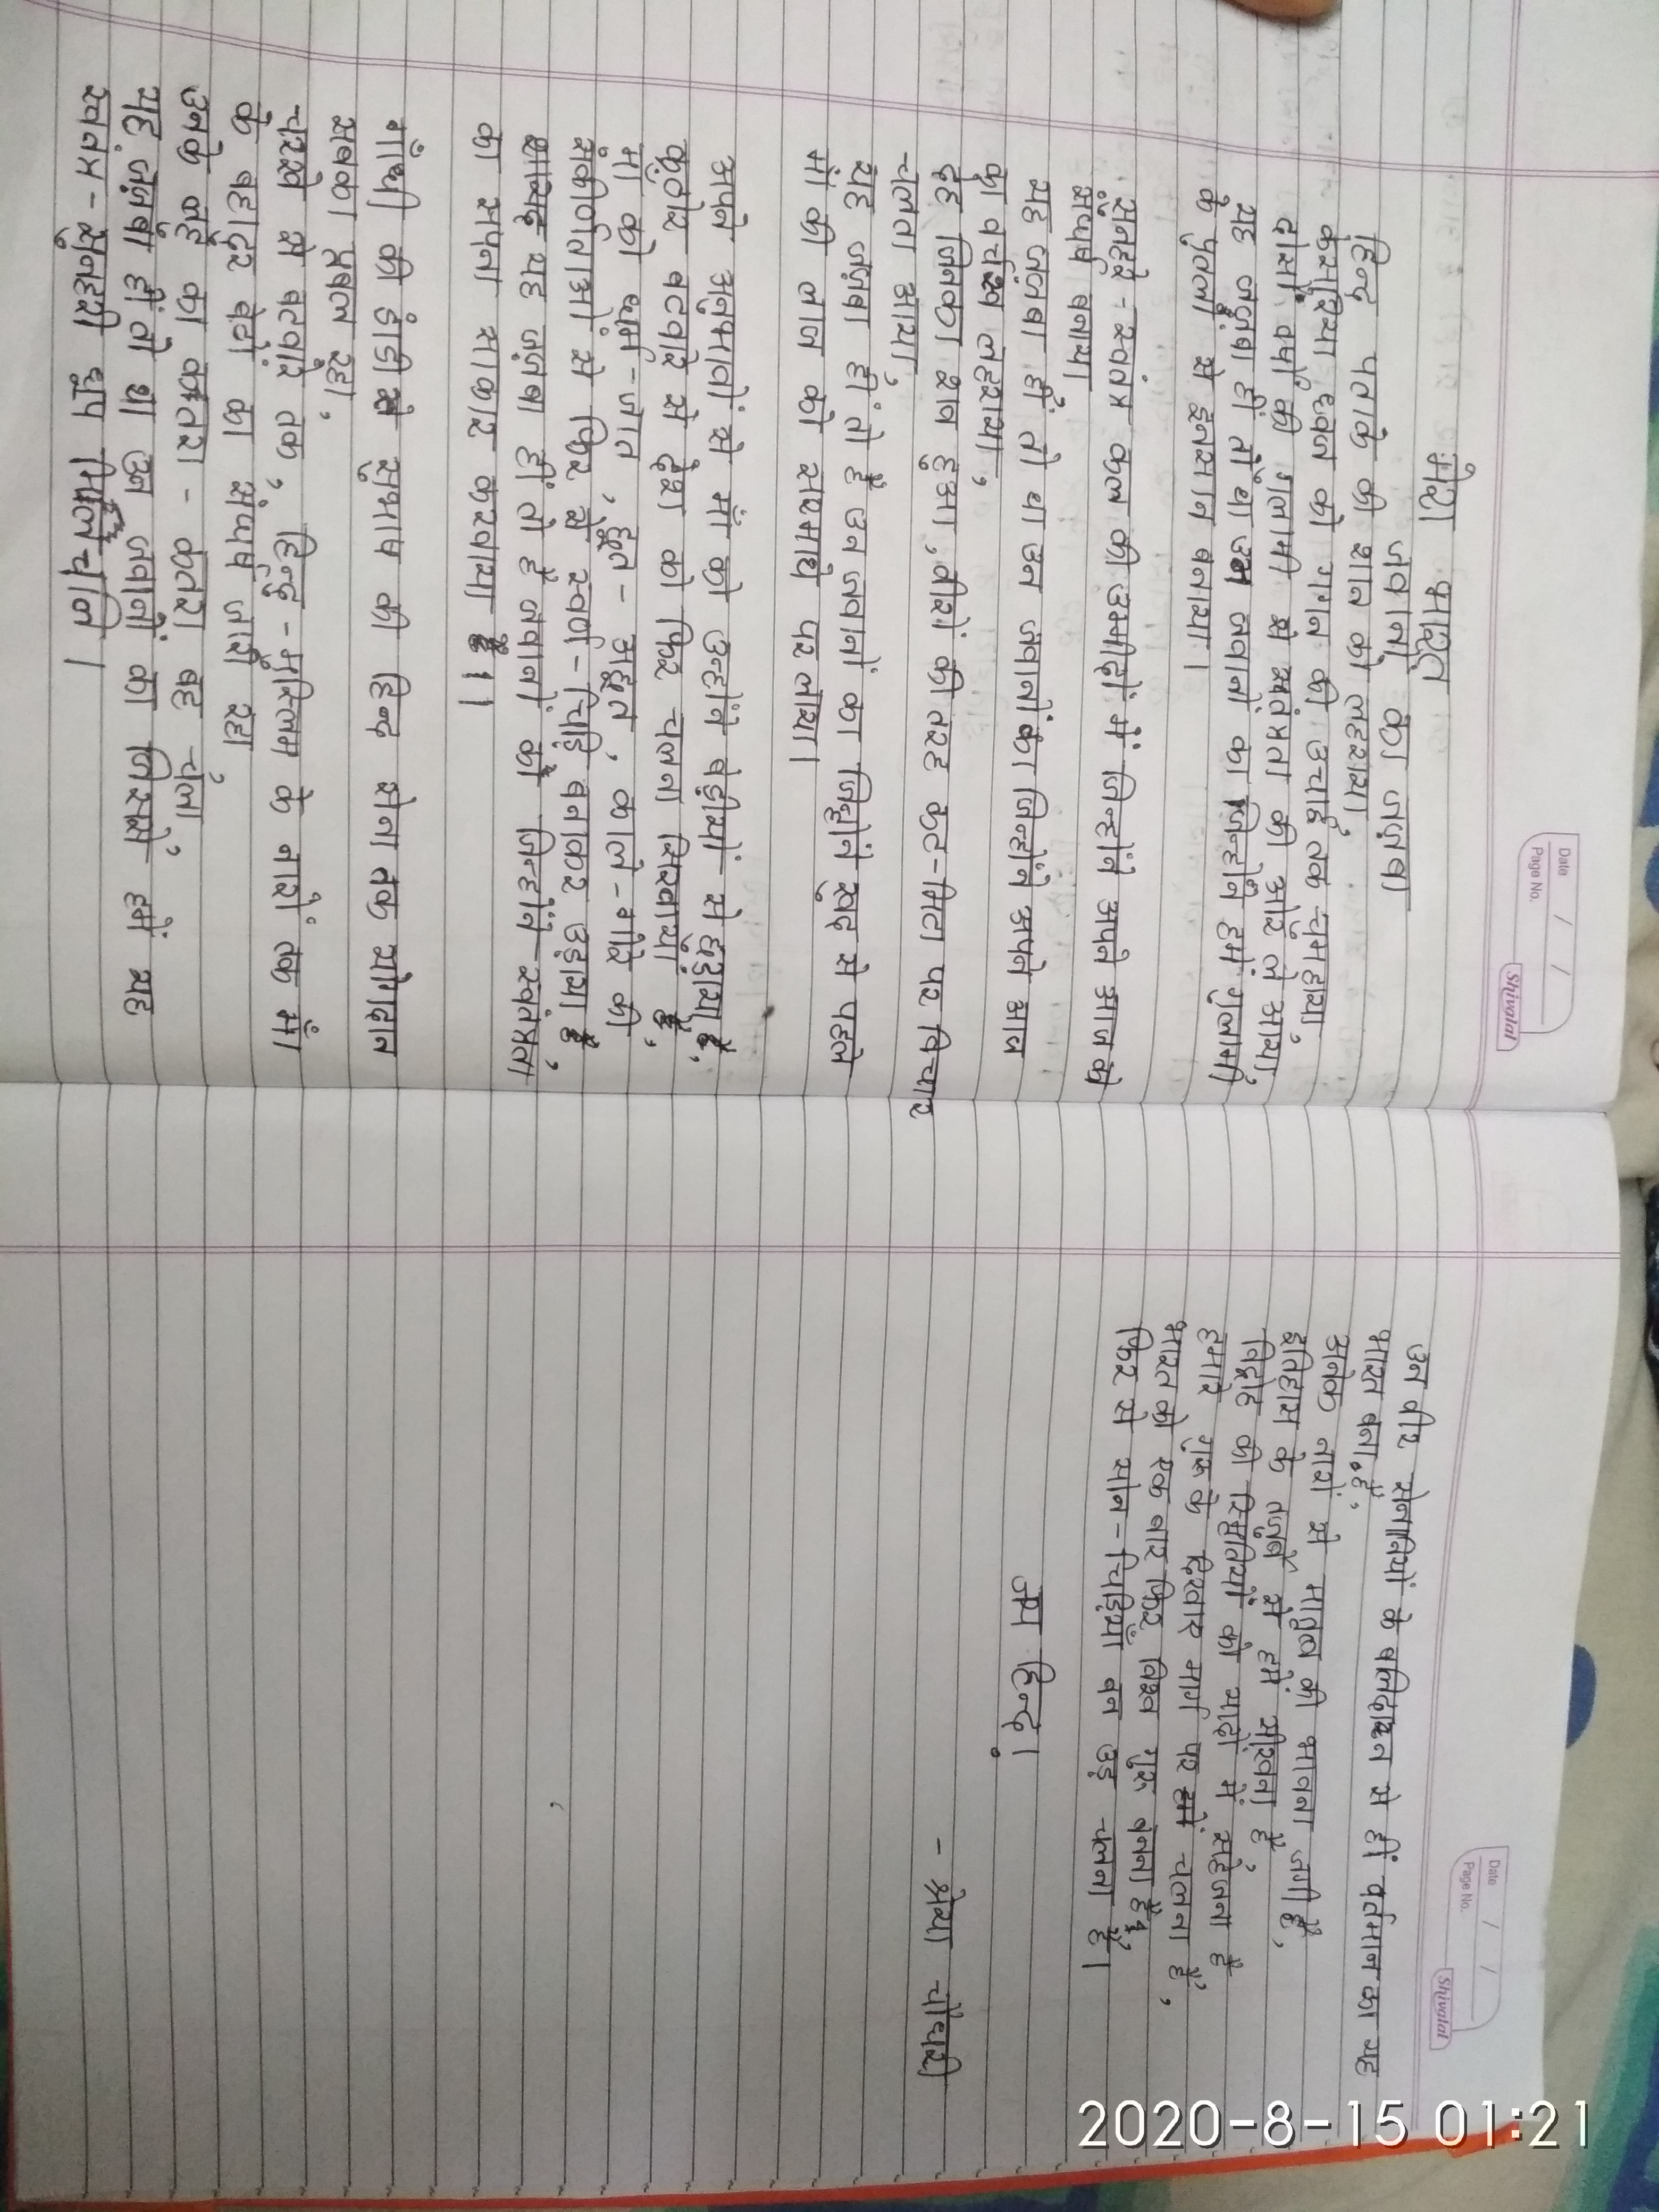 Date / /
Page No.
Shivalal
मेरा भारत
जवानों का जज़्बा
हिन्द पताके की शान को लहराया,
केसरिया ध्वज को गगन की उचाई तक चुमहाया,
दोसौ वर्षों की गलामी से स्वतंत्रता की ओर ले आया,
यह जज़्बा हीं तों था उन जवानों का जिन्होंने हमें गुलामी
के पुतलों से इनसान बनाया।
सुनहरे-स्वतंत्र कल की उम्मीदों में जिन्होंने अपने आज को
संघर्ष बनाया
यह जज़्बा हीं तो था उन जवानों का जिन्होंने अपने आज
का वर्चस्व लहराया,
देह जिनका शव हुआ, वीरों की तरह कट-मिटा पर विचार
चलता आया,
यह जज़्बा हीं तो हैं उन जवानों का जिन्होंने खुद से पहले
मां की लाज को सरमाथे पर लाया।
अपने अनुभावों से माँ को उन्होंने बेड़ीयों से छुड़ाया है,
कठोर बटवारे से देश को फिर चलना सिखाया है,
मां को धर्म-जात, छूत-अछूत, काले-गोरे की
संकीर्णताओं से फिर से स्वर्ण-चिड़ि बनाकर उड़ाया है,
शायद यह जज़्बा हीं तो हैं जवानों का जिन्होंने स्वतंत्रता
का सपना साकार करवाया है।।
गाँधी की डांडी से सुभाष की हिन्द सेना तक योगदान
सबका प्रबल रहा,
चरखे से बटवारे तक, हिन्दू-मुस्लिम के नारों तक माँ
के बहादूर बेटों का संघर्ष जारी रहा
उनके लहूँ का कतरा-कतरा बह चला,
यह जज़्बा हीं तो था उन जवानों का जिससे हमें यह
स्वतंत्र-सुनहरी धुप मिलें चलि।
Date / /
Page No.
Shivalal
उन वीर सेनानियों के बलिदान से हीं वर्तमान का यह
भारत बना है,
अनेक नारों से मातृत्व की भावना जगी हैं,
इतिहास के तजुर्बे से हमें सीखना है,
विद्रोह की स्मृतियों को यादों में सहेजना है
हमारे गुरू के दिखाए मार्ग पर हमें चलना है,
भारत को एक बार फिर विश्व गुरू बनना है,
फिर से सोन-चिड़िया बन उड़ चलना है।
जय हिन्द।
- श्रेया चौधरी
2020-8-15 01:21